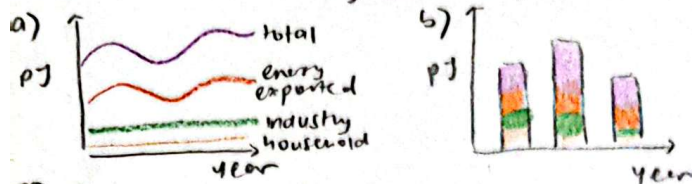 a)
total
PJ
energy
exported
industry
household
year
b)
PJ
year